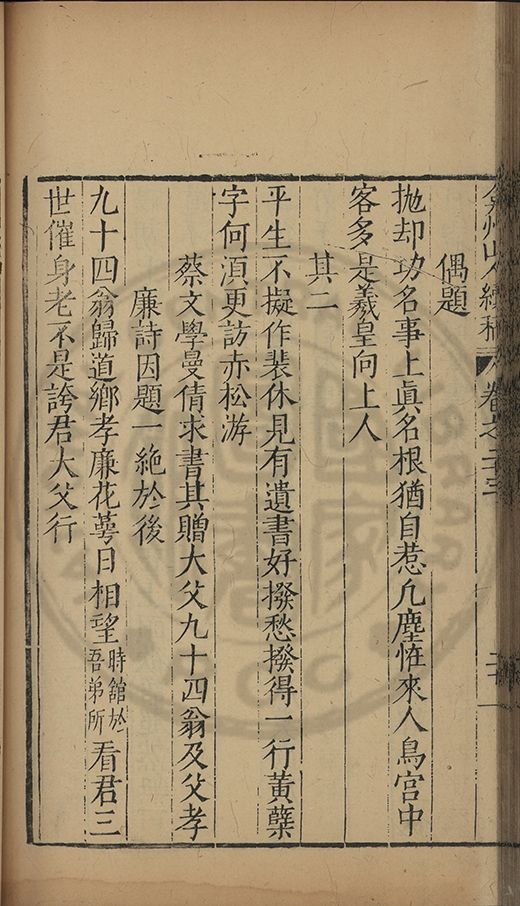 州山人續稿 卷之
偶題
拋却功名事上眞名根猶自惹凢塵恠來人鳥宮中
客多是羲皇向上人
其二
平生不擬作裴休見有遺書好撥愁撥得一行黃蘗
字何湏更訪赤松游
蔡文學曼倩求書其贈大父九十四翁及父孝
廉詩因題一絶於後
九十四翁歸道鄉孝廉花萼日相望時舘於吾弟所看君三
世催身老不是誇君大父行